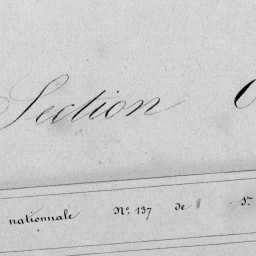 Section
nationnale N.º 137 de S.t